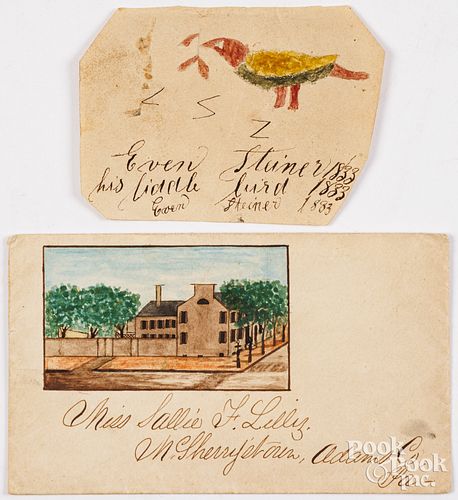 L S Z
Even Steiner 1883
his liddle bird 1883
Even Steiner 1883
Miss Sallie F. Lilly,
McSherrystown, Adams Co
Pa
Pook & Pook
Inc.